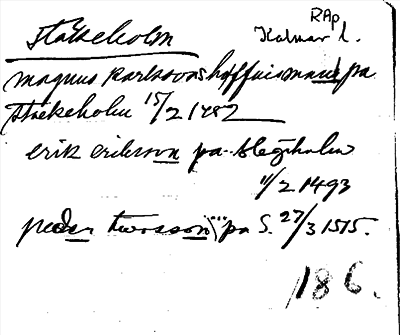 RAp
Stäkeholm Kalmar l.
magnus Karlssons höffuismand pa
Stäkeholm 15/2 1482
erik erikson pa Stegeholm
11/2 1493
peder turesson pa S. 27/3 1515.
186.